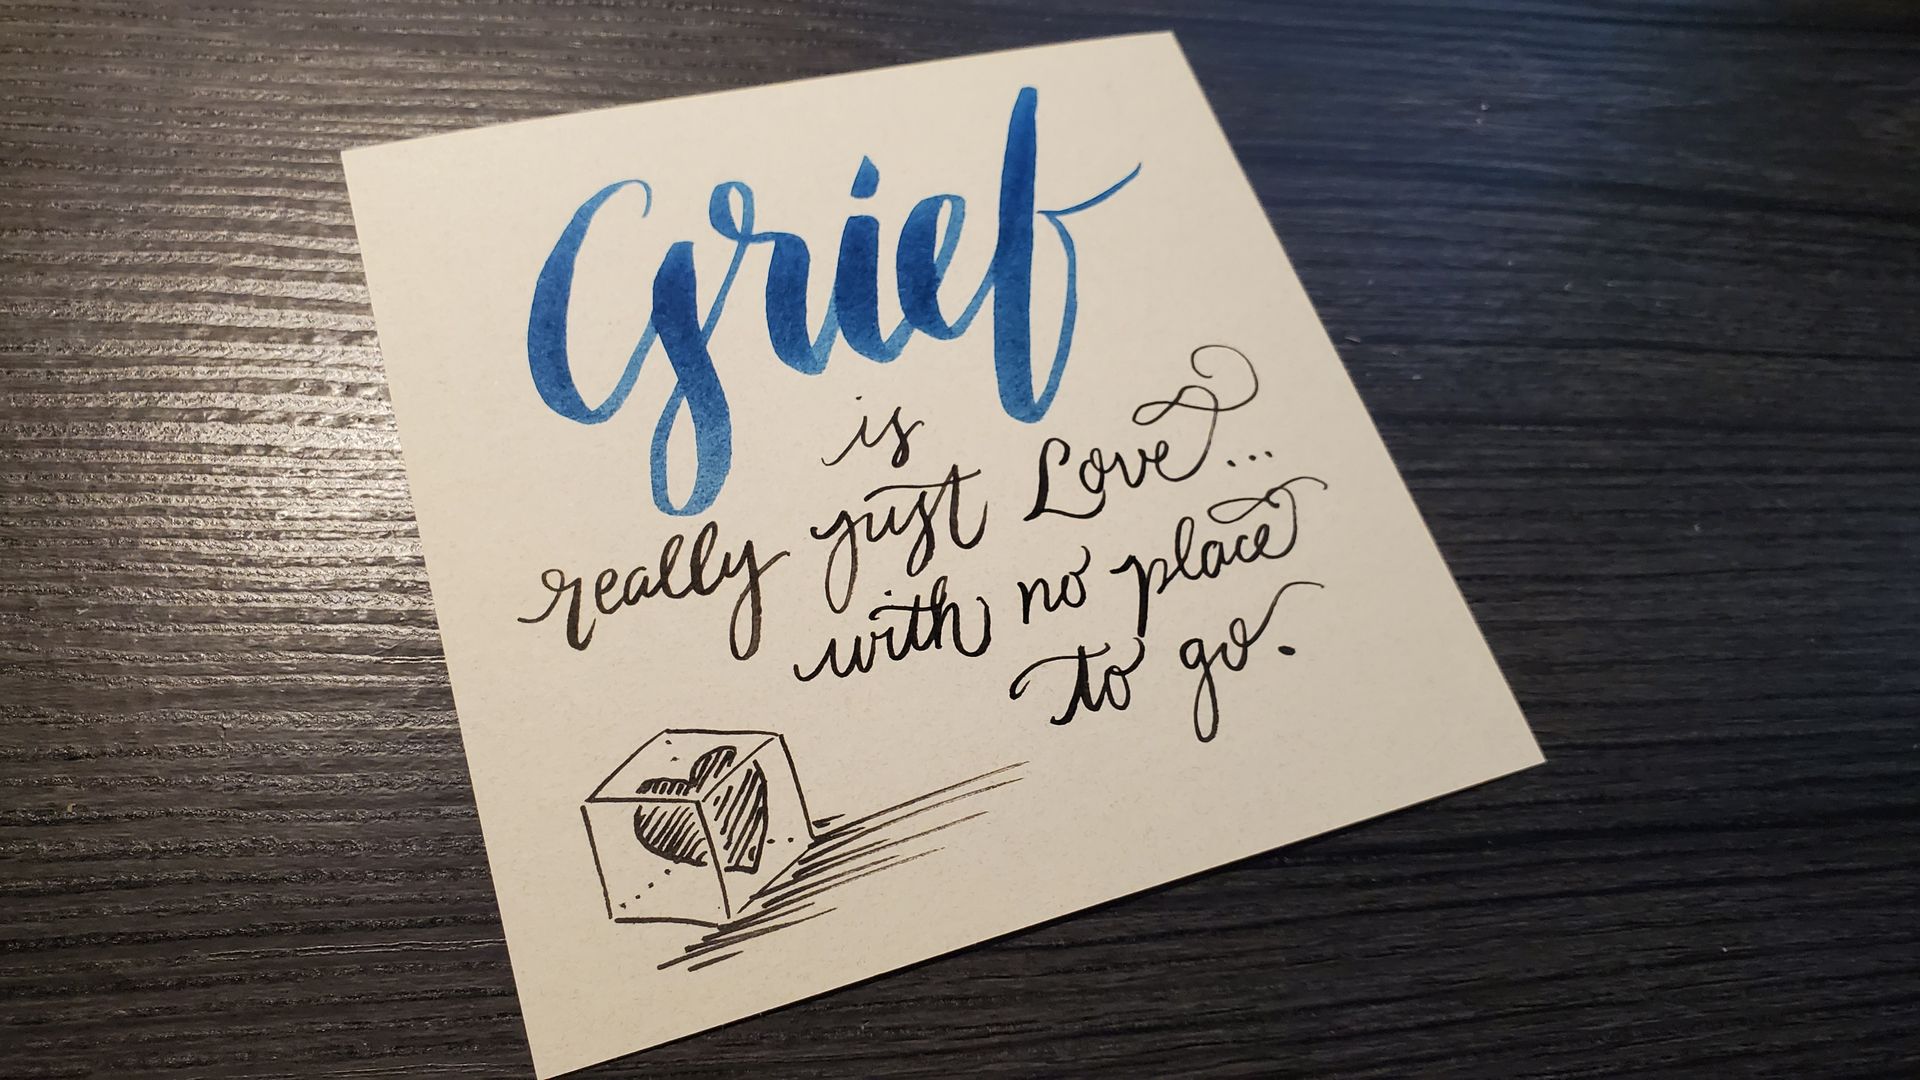 Grief
is
really just Love...
with no place
to go.